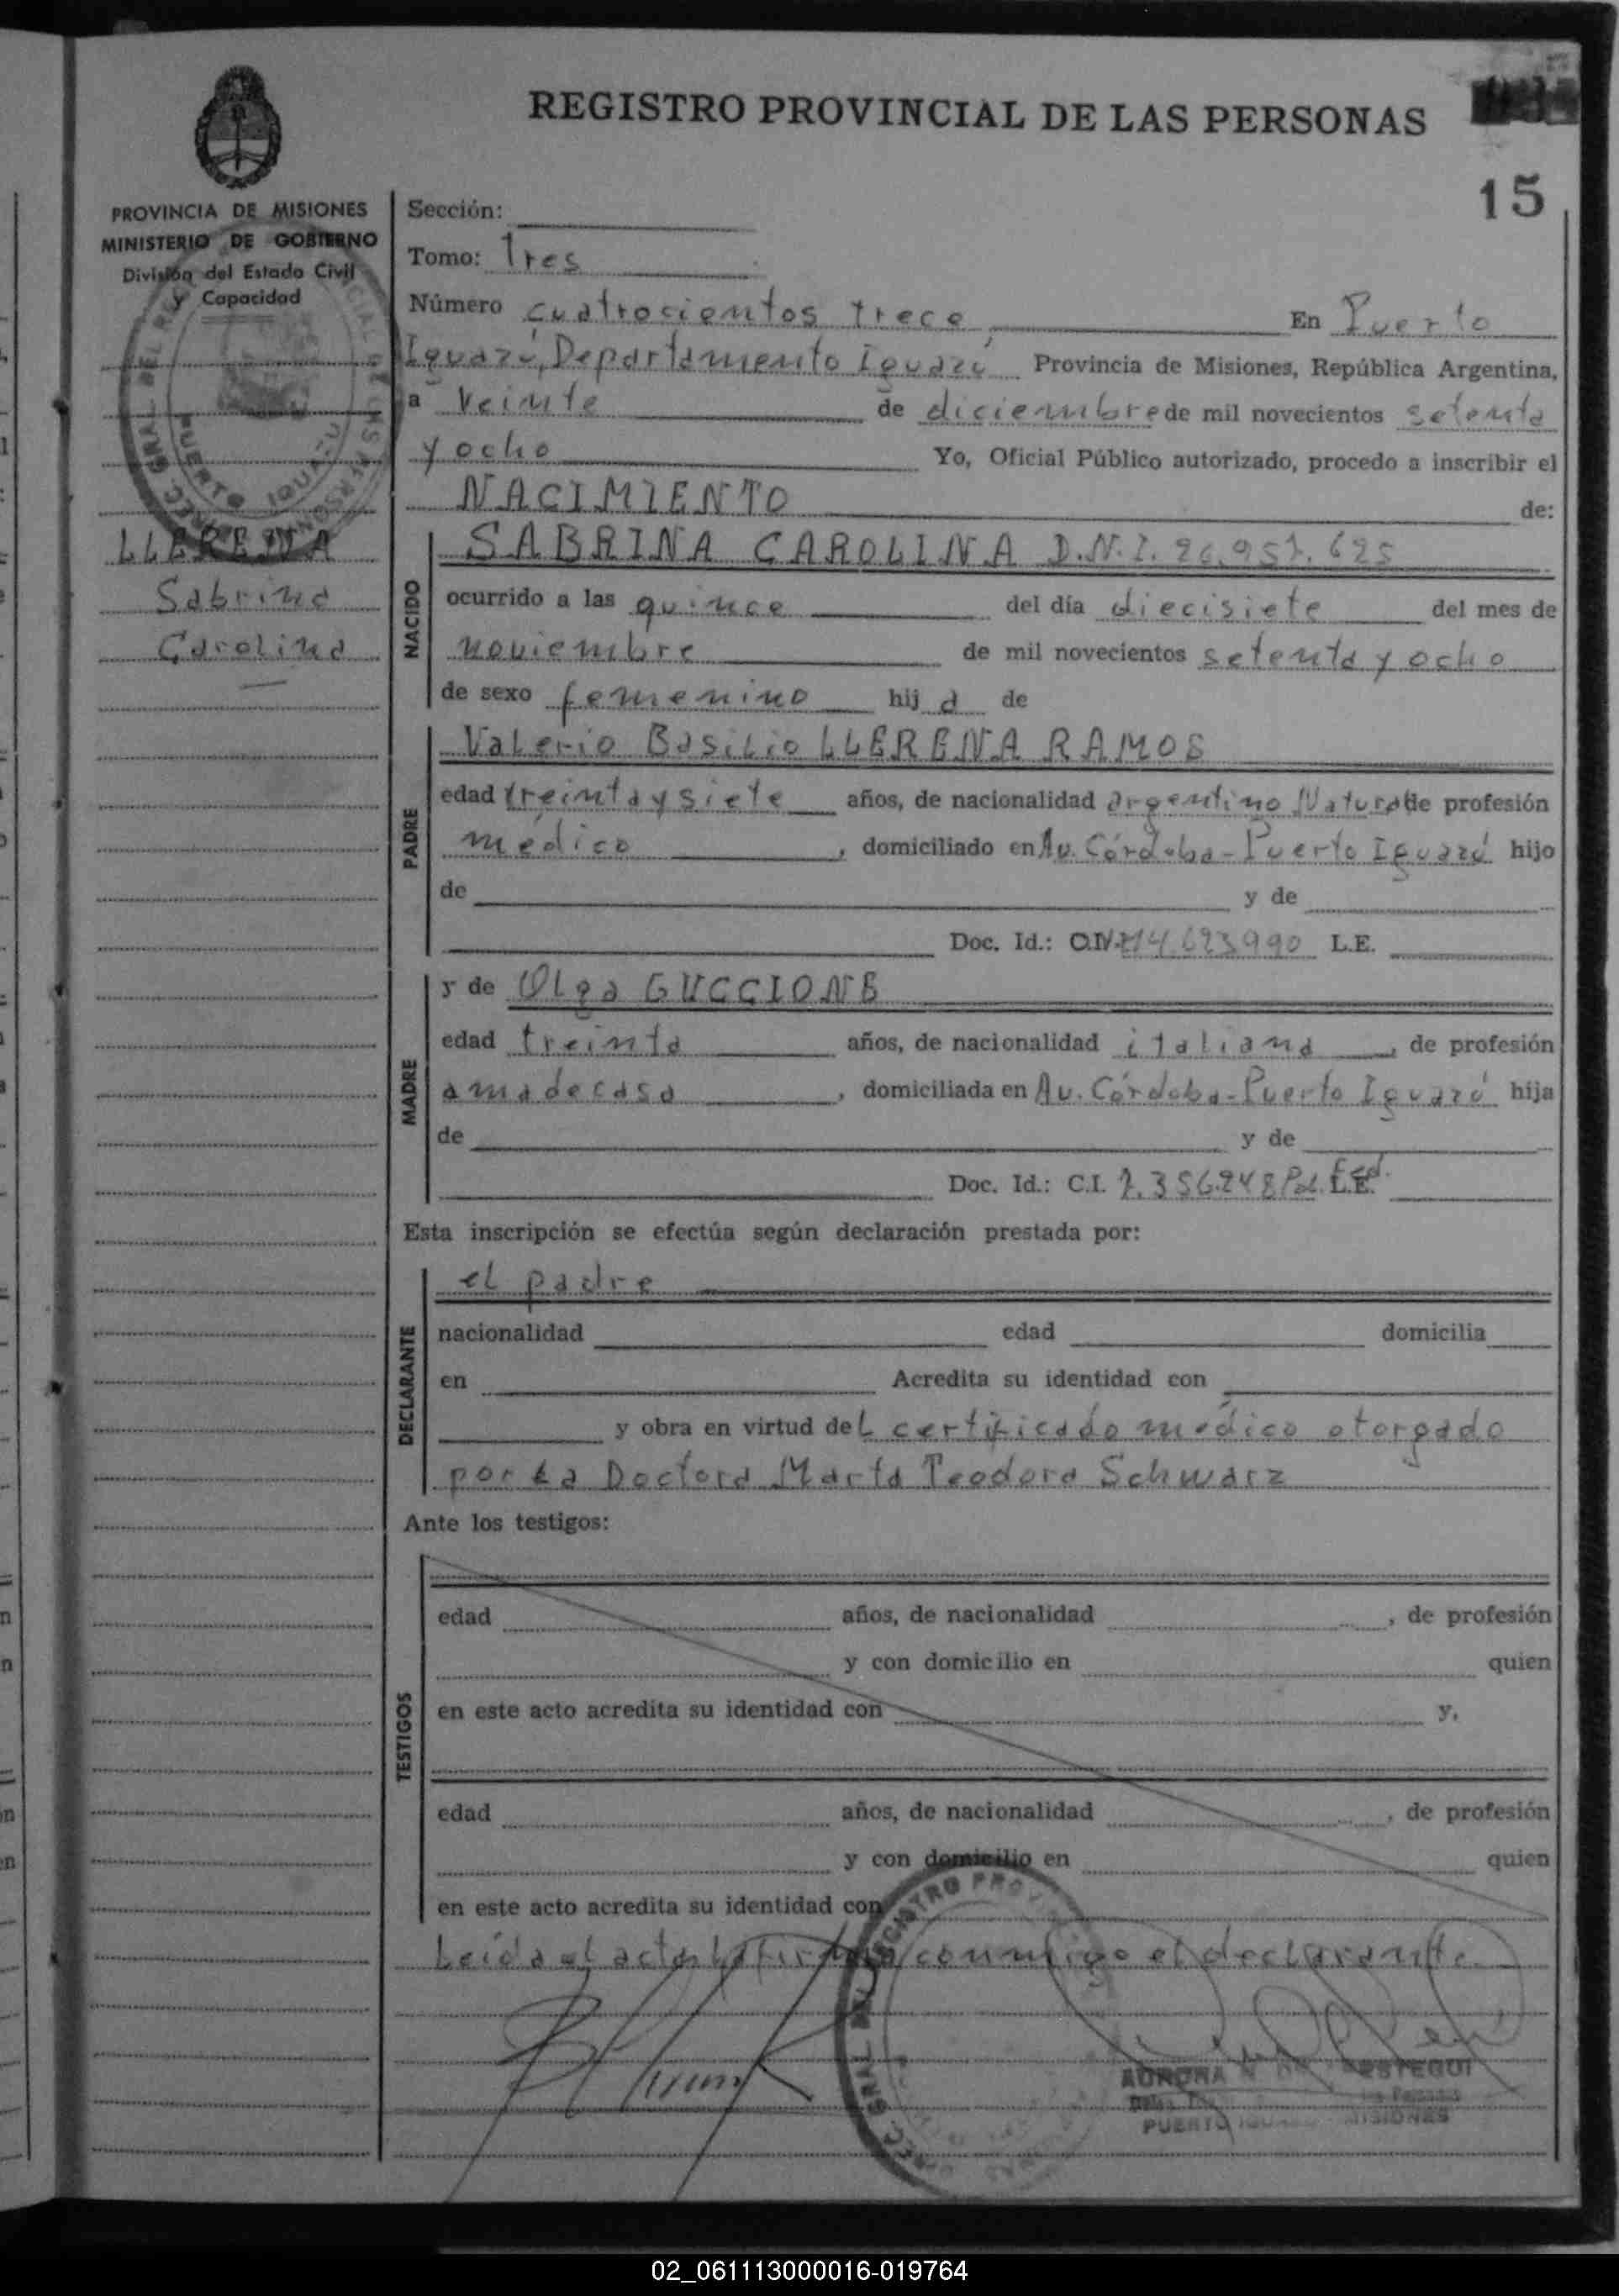 REGISTRO PROVINCIAL DE LAS PERSONAS
15
PROVINCIA DE MISIONES
MINISTERIO DE GOBIERNO
División del Estado Civil
y Capacidad
LLERENA
Sabrina
Carolina
Sección:
Tomo: Tres
Número cuatrocientos trece En Puerto
Iguazú, Departamento Iguazú Provincia de Misiones, República Argentina,
a Veinte de diciembre de mil novecientos setenta
y ocho Yo, Oficial Público autorizado, procedo a inscribir el
NACIMIENTO de:
NACIDO
SABRINA CAROLINA D.N.I. 26.957.625
ocurrido a las quince del día diecisiete del mes de
noviembre de mil novecientos setenta y ocho
de sexo femenino hij a de
PADRE
Valerio Basilio LLERENA RAMOS
edad treinta y siete años, de nacionalidad argentino Natura de profesión
médico , domiciliado en Av. Córdoba - Puerto Iguazú hijo
de y de
Doc. Id.: 14.623990 L.E.
MADRE
y de Olga GUCCIONE
edad treinta años, de nacionalidad italiana , de profesión
ama de casa , domiciliada en Av. Córdoba - Puerto Iguazú hija
de y de
Doc. Id.: C.I. 7.356.248 Pol. Fed. L.E.
Esta inscripción se efectúa según declaración prestada por:
DECLARANTE
el padre
nacionalidad edad domicilia
en Acredita su identidad con
y obra en virtud del certificado médico otorgado
por la Doctora Marta Teodora Schwarz
Ante los testigos:
TESTIGOS
edad años, de nacionalidad , de profesión
y con domicilio en quien
en este acto acredita su identidad con y,
edad años, de nacionalidad , de profesión
y con domicilio en quien
en este acto acredita su identidad con
Leída el acta la firma conmigo el declarante.
AURORA
PUERTO IGUAZU MISIONES
02_061113000016-019764